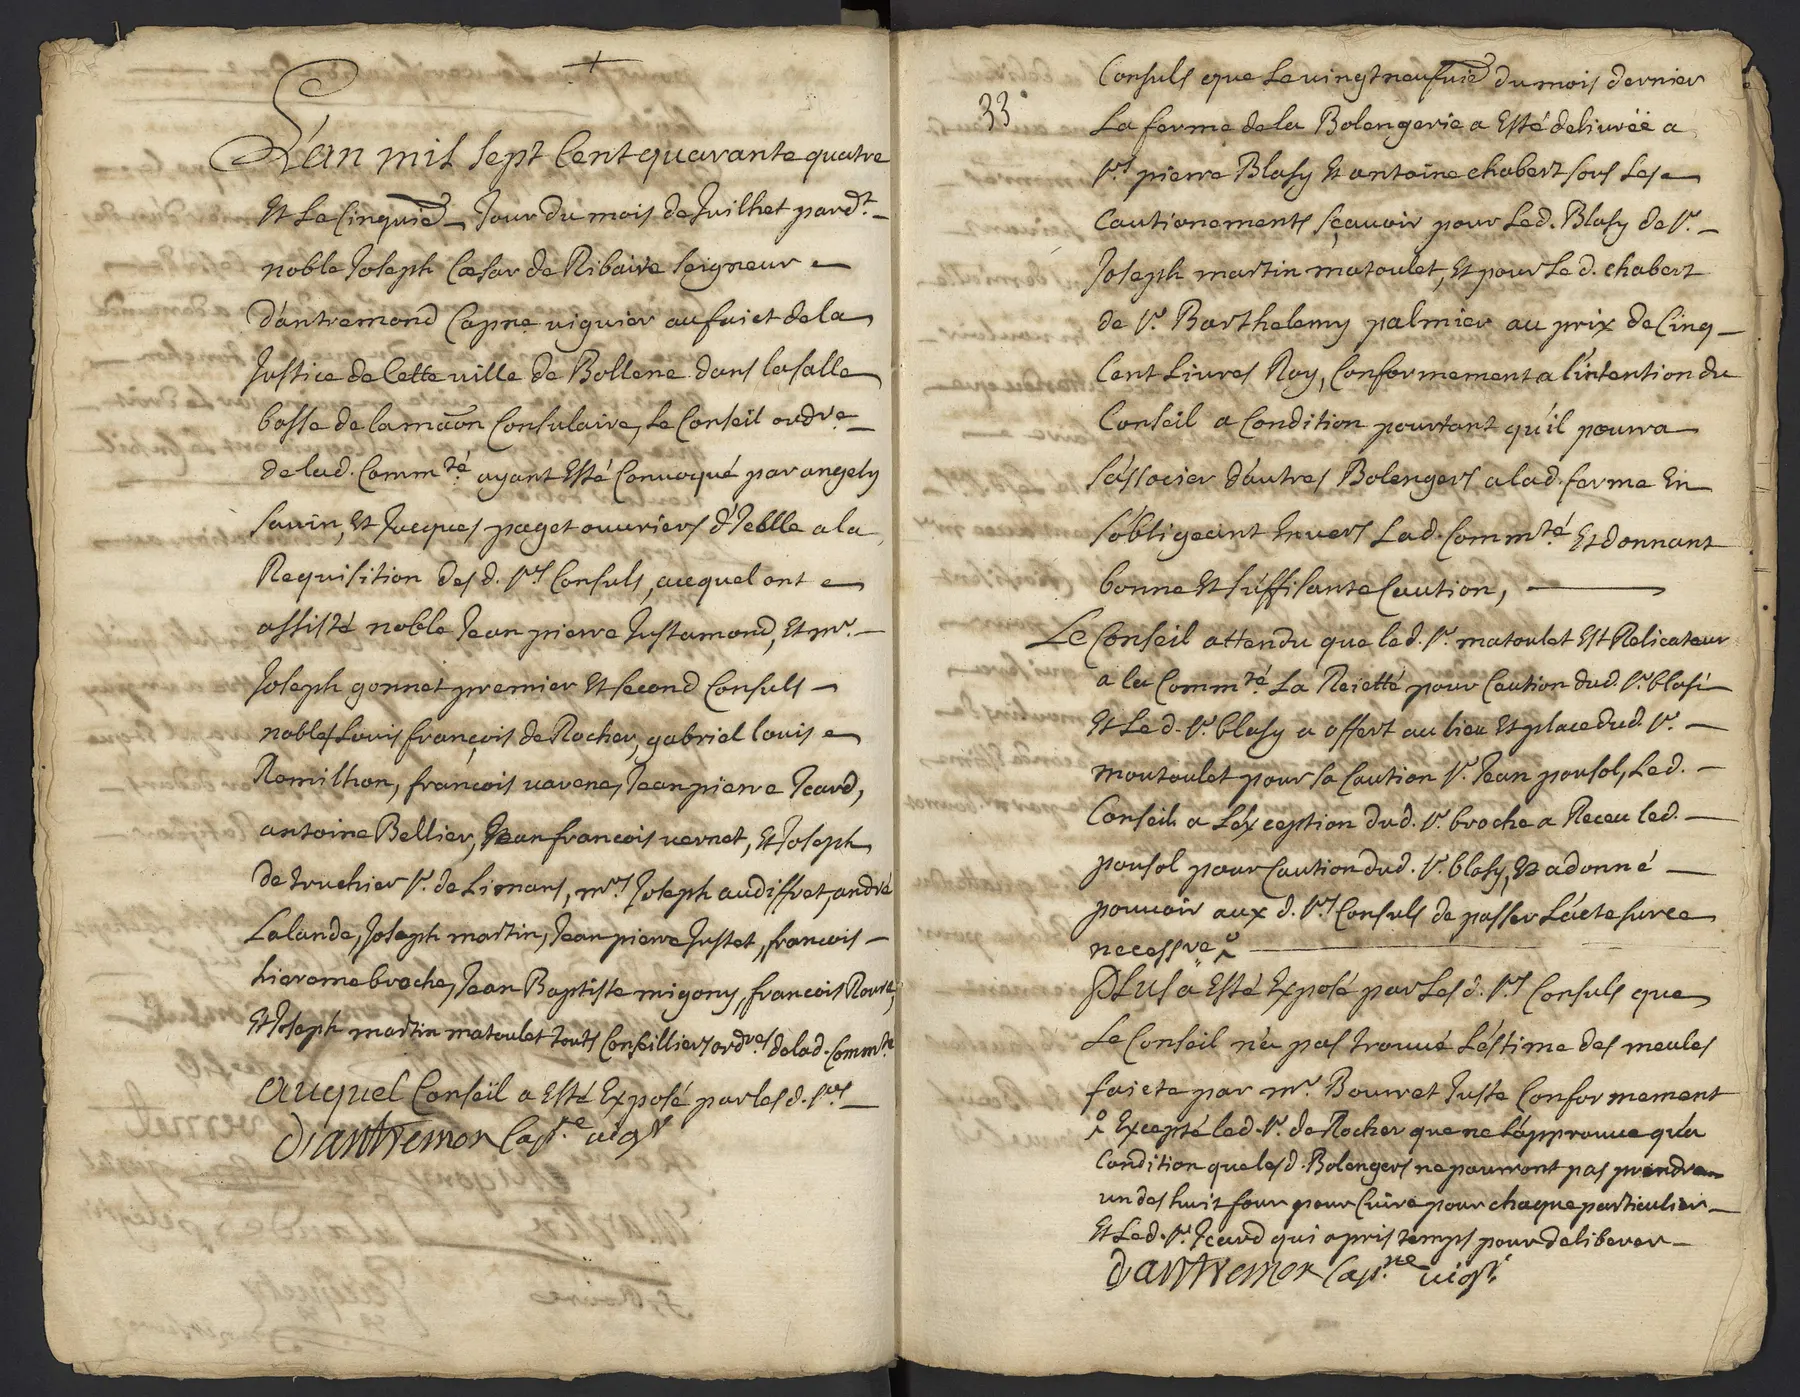 +
L'an mil sept Cent quarante quatre
Et Le Cinquie̅ Jour du mois de Juilhet pard.t
noble Joseph Cæsar de Ribaire seigneur
D'antremond Capne viguier au faict de la
Justice de Cette ville de Bollene dans la salle
basse de la maôn Consulaire, Le Conseil ordre
de lad. Comm.té ayant Esté Convoqué par angely
savin, Et Jacques paget ouvriers d'Jcelle a la
Requisition des d. Srs Consuls, auquel ont
assisté noble Jean pierre Justamond, Et mr.
Joseph gonnet premier Et second Consuls
nobles Louis françois de Rocher, gabriel louis
Remilhon, françois varene, Jean pierre Jcard,
antoine Bellier, Jean francois vernet, Et Joseph
de truchier Sr. de Limans, mrs Joseph audiffret, andré
Lalande, Joseph martin, Jean pierre Justet, francois
hierome broche, Jean Baptiste migony, francois Roure,
Et Joseph martin matoulet touts Conseilliers ordres de lad. Commté
auquel Conseil a Esté Exposé par les d. Srs
D'antremon Cap.e vigr
33
Consuls que Le vingt neufvie̅ du mois dernier
La ferme de la Bolengerie a Esté delivréë a
Srs pierre Blasy Et antoine chabert sous Les
Cautionements sçavoir pour Led. Blasy de Sr.
Joseph martin matoulet, Et pour Le d. chabert
de Sr. Barthelemy palmier au prix de Cinq
Cent Livres Roy, Conformement a l'intention du
Conseil a Condition pourtant qu'il pourra
s'associer d'autres Bolengers a lad. ferme En
s'obligeant Envers Lad. Comm.té Et donnant
bonne Et suffisante Caution,
Le Conseil attendu que led. Sr. matoulet Est Relicateur
a la Comm.té La Reietté pour Caution dud. Sr. blasi
Et Led. Sr. blasy a offert au lieu Et place dud. Sr.
moutoulet pour sa Caution Sr. Jean pousol, Led.
Conseil a L'exception dud. Sr. broche a Receu led.
pousol pour Caution dud. Sr. blasy, Et a donné
pouvoir aux d. Srs Consuls de passer L'acte sur ce
necessre
PLus a Esté Exposé par Les d. Srs Consuls que
Le Conseil n'a pas trouvé L'estime des meules
faicte par mr. Bourret Juste Conformement
Excepté led. Sr. de Rocher que ne L'approuve qu'a
Condition que les d. Bolengers ne pourront pas prendre
un des huit four pour Cuire pour chaque particulier
Et Led. Sr. Jcard qui a pris temps pour deliberer
D'antremon Cap.ne vigr